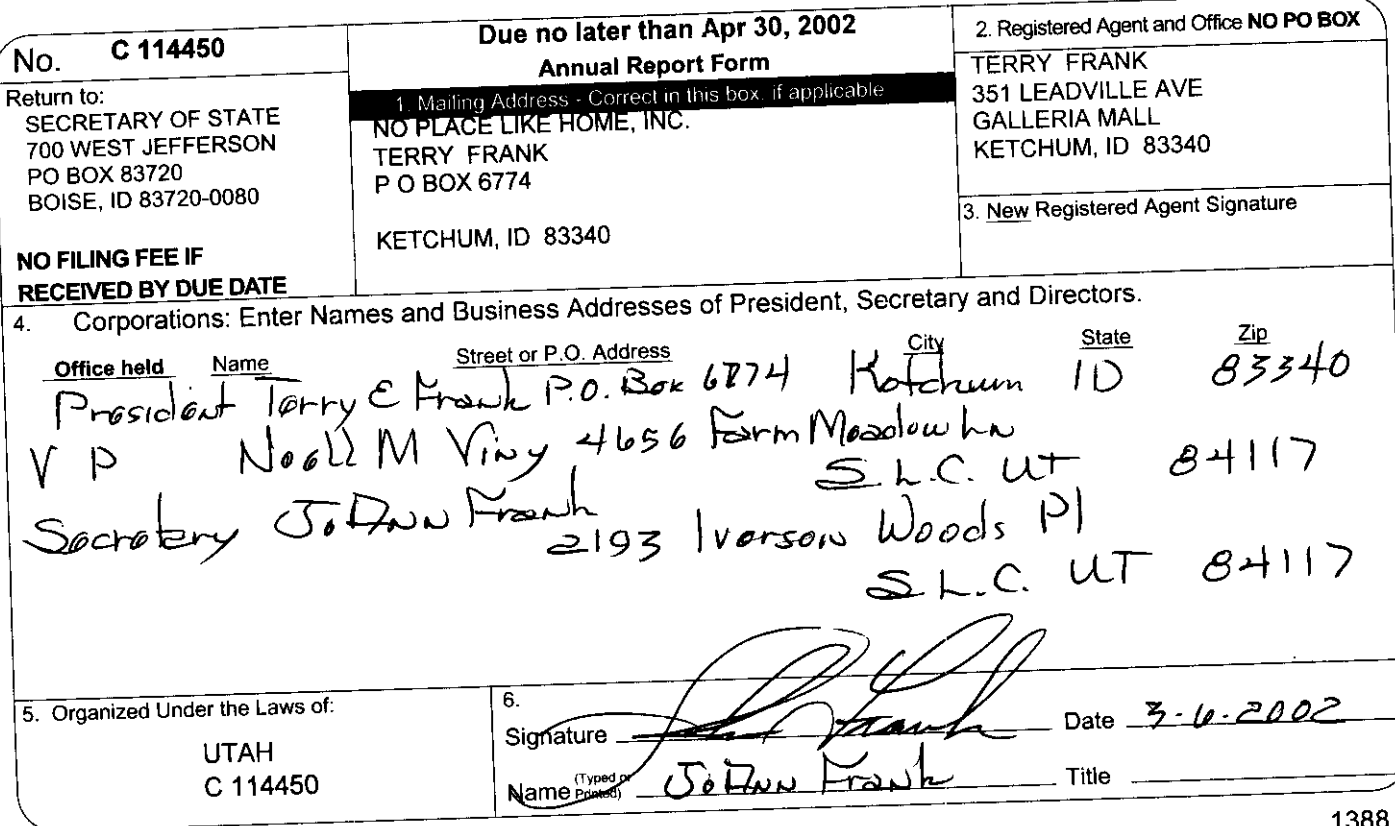 No. C 114450
Return to:
SECRETARY OF STATE
700 WEST JEFFERSON
PO BOX 83720
BOISE, ID 83720-0080
NO FILING FEE IF
RECEIVED BY DUE DATE
Due no later than Apr 30, 2002
Annual Report Form
1. Mailing Address - Correct in this box, if applicable
NO PLACE LIKE HOME, INC.
TERRY FRANK
P O BOX 6774
KETCHUM, ID 83340
2. Registered Agent and Office NO PO BOX
TERRY FRANK
351 LEADVILLE AVE
GALLERIA MALL
KETCHUM, ID 83340
3. New Registered Agent Signature
4. Corporations: Enter Names and Business Addresses of President, Secretary and Directors.
Office held Name Street or P.O. Address City State Zip
President Terry E Frank P.O. Box 6774 Ketchum ID 83340
V P Noell M Viny 4656 Farm Meadow Ln
S.L.C. UT 84117
Secretary JoAnn Frank
2193 Iverson Woods Pl
S.L.C. UT 84117
5. Organized Under the Laws of:
UTAH
C 114450
6.
Signature Frank Date 3-6-2002
Name (Typed or Printed) JoAnn Frank Title
1388